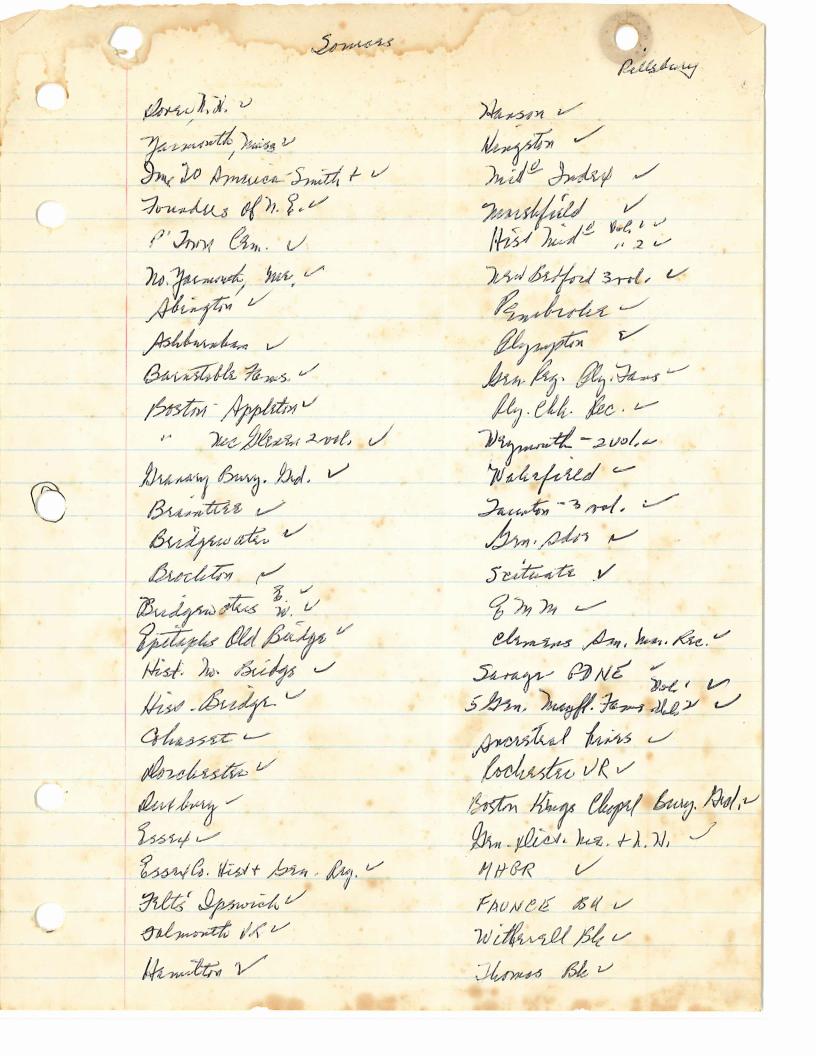 Somers
Pillsbury
Dover, N.H. ✓
Yarmouth, Mass ✓
Imm To America - Smith + ✓
Founders of N.E. ✓
P'Town Cem. ✓
No. Yarmouth, Me. ✓
Abington ✓
Ashburnham ✓
Barnstable Fams. ✓
Boston - Appleton ✓
" Mc Glenen 2 vol. ✓
Granary Bury. Grd. ✓
Braintree ✓
Bridgewater ✓
Brockton ✓
Bridgewaters E. ✓
W. ✓
Epitaphs Old Bridge ✓
Hist. No. Bridge ✓
Hiss. Bridge ✓
Cohasset ✓
Dorchester ✓
Duxbury ✓
Essex ✓
Essex Co. Hist + Gen. Reg. ✓
Felts Ipswich ✓
Falmouth VR ✓
Hamilton ✓
Hanson ✓
Kingston ✓
Midd Index ✓
Marshfield ✓
Hist Midd Vol. 1 ✓
" 2 ✓
New Bedford 3 vol. ✓
Pembroke ✓
Plympton ✓
Gen. Reg. Ply. Fams ✓
Ply. Chh. Rec. ✓
Weymouth - 2 vol. ✓
Wakefield ✓
Taunton - 3 vol. ✓
Gen. Advr ✓
Scituate ✓
E M M ✓
Clemens Am. Mar. Rec. ✓
Savage GDNE ✓
5 Gen. Mayfl. Fams Vol. 1 ✓
Vol. 2 ✓
Ancestral Lines ✓
Rochester VR ✓
Boston Kings Chapel Bury. Grd. ✓
Gen. Dict. Me. + N.H. ✓
MHGR ✓
FAUNCE BK ✓
Witherell Bk ✓
Thomas Bk ✓